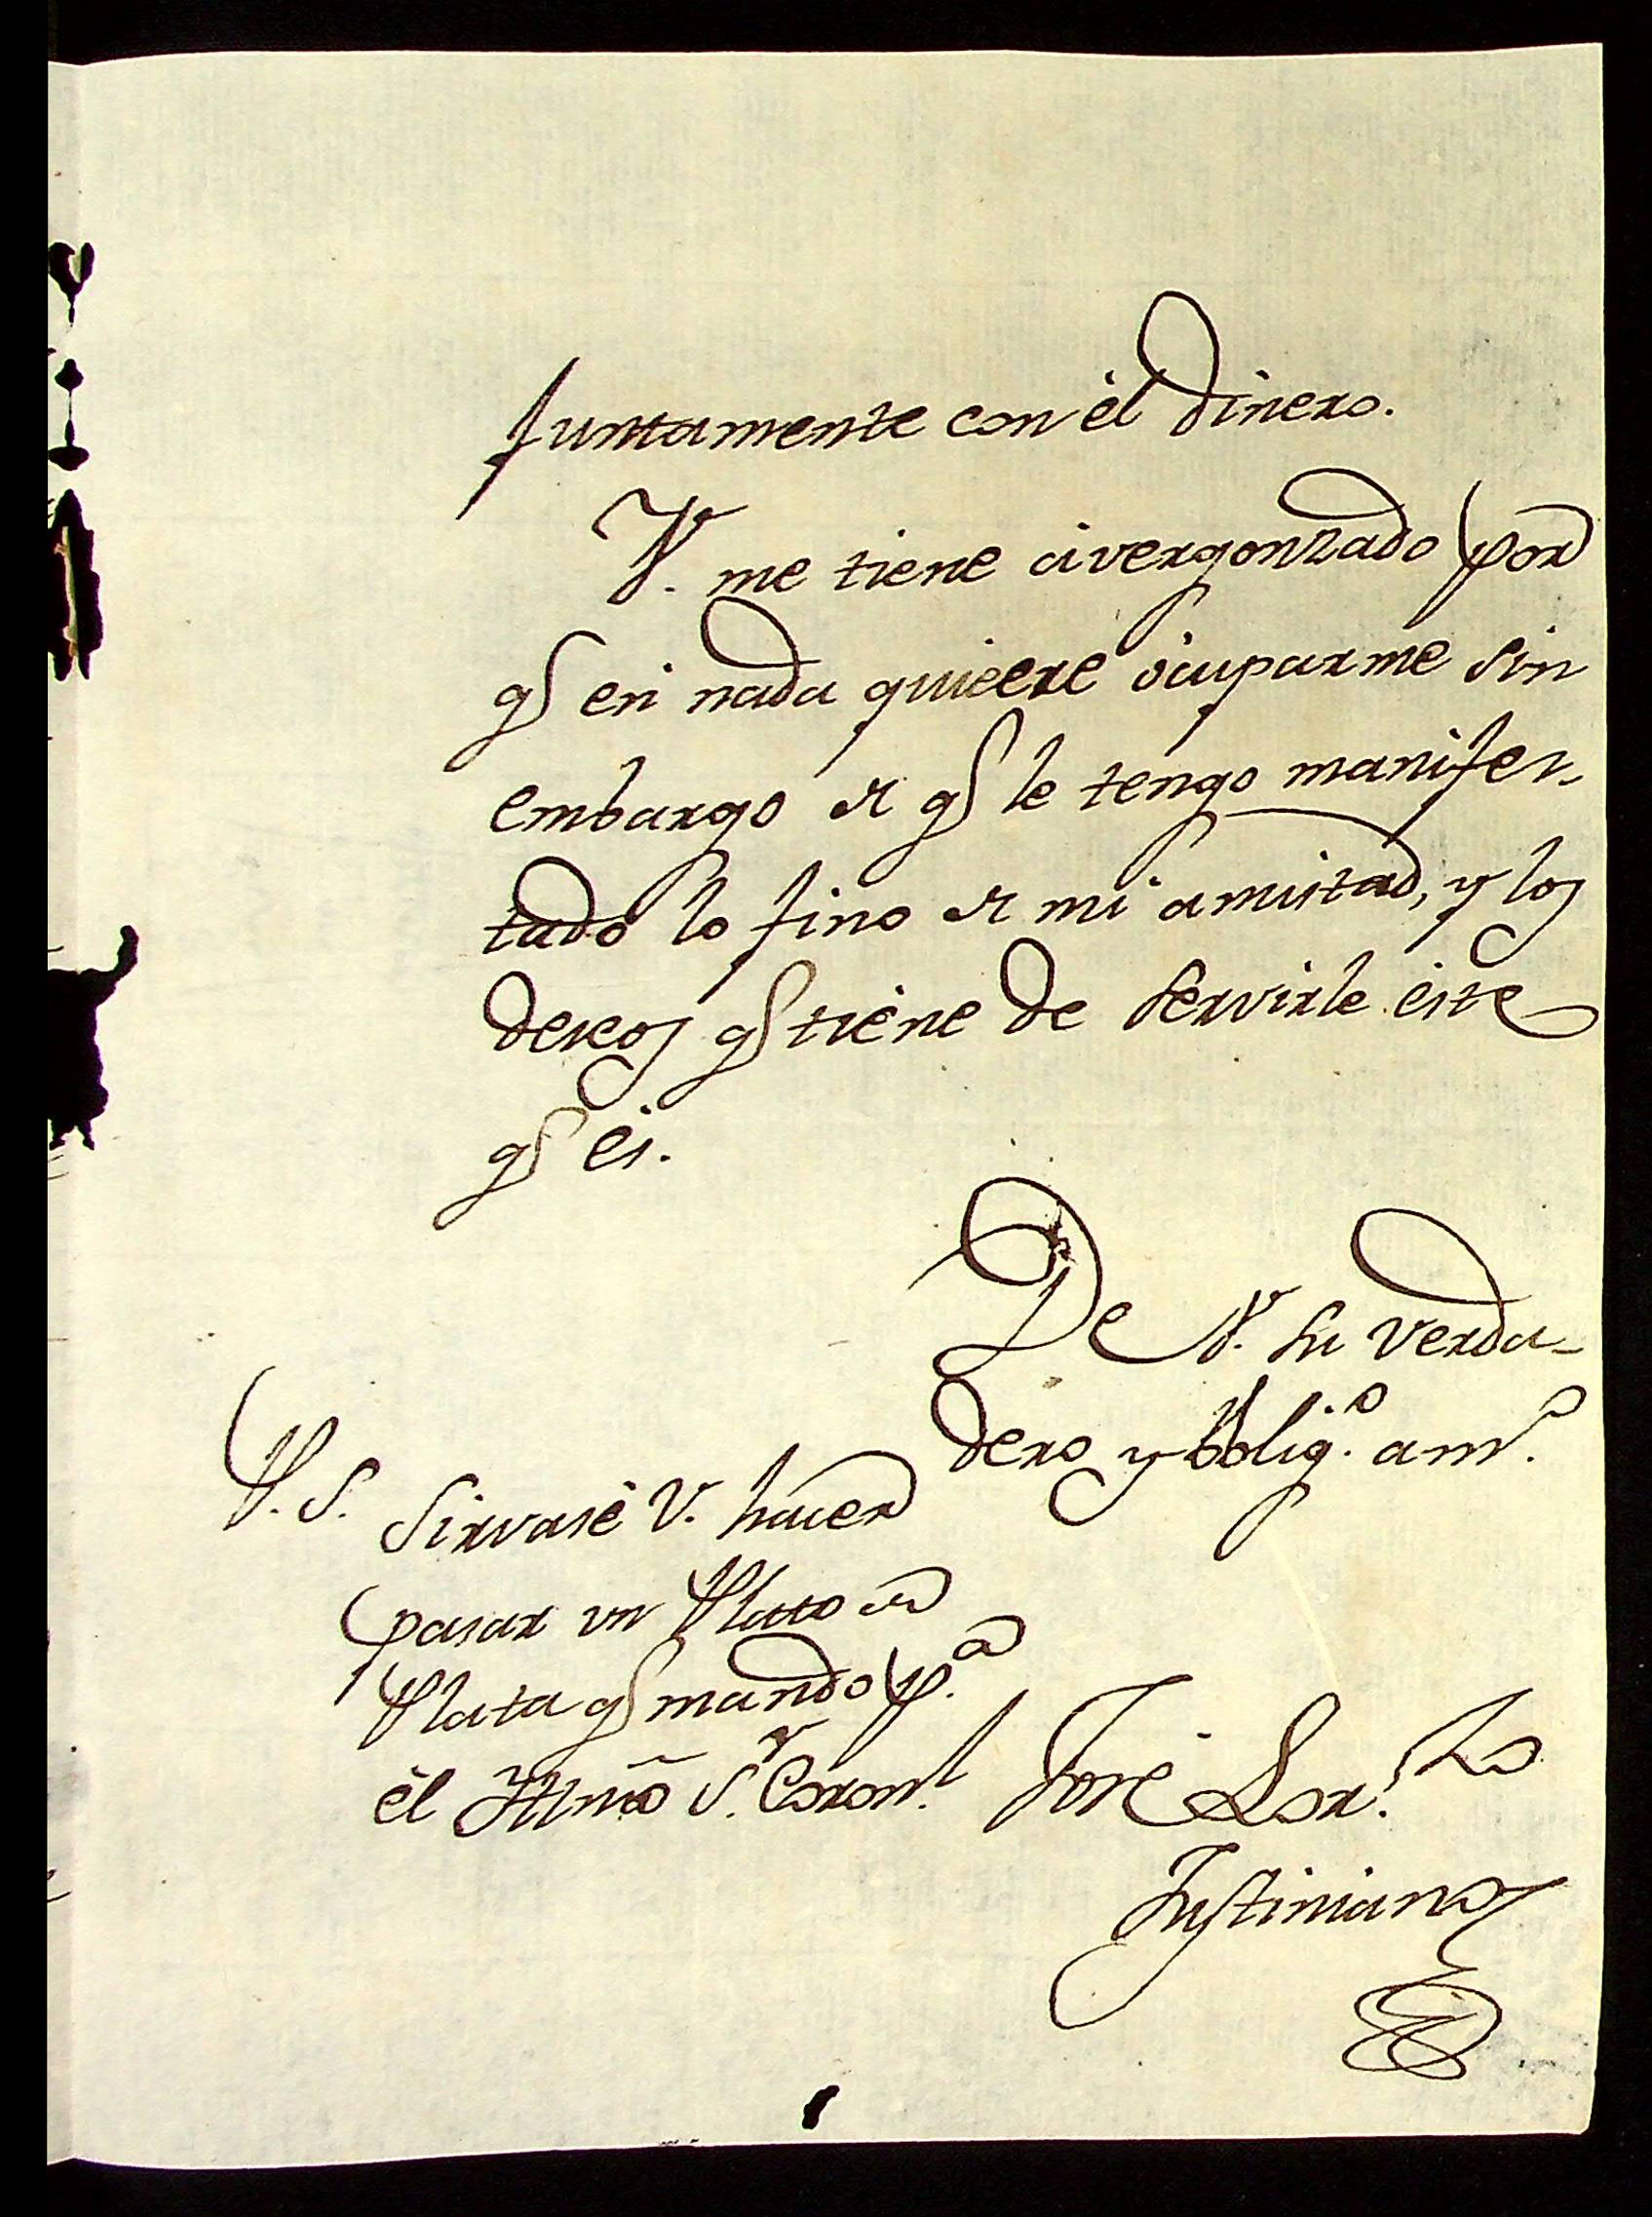 Juntamente con el dinero.
V. me tiene avergonzado por
q̃ en nada quiere ocuparme sin
embargo de q̃ le tengo manifes-
tado lo fino de mi amistad, y los
deseos q̃ tiene de servirle este
q̃ es.
De V. su verda-
dero y oblig.º am.º
P. S. Sirvase V. hacer
pasar un Plato de
Plata q̃ mando p.ª
el Illmo S.r Coron.l
José Lor.zo
Justiniano